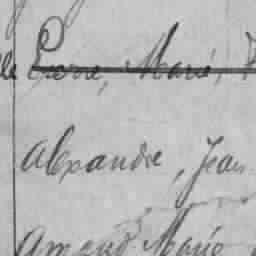 Pierre, Marie,
Alexandre, Jean
Amand Marie